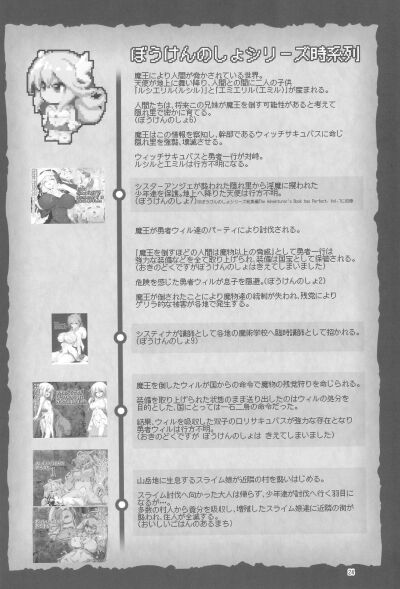 ぼうけんのしょシリーズ時系列
魔王により人間が脅かされている世界。
天使が地上に舞い降り、人間との間に二人の子供
「ルシエリル(ルシル)」と「エミエリル(エミル)」が産まれる。
人間たちは、将来この兄妹が魔王を倒す可能性があると考えて
隠れ里で密かに育てる。
(ぼうけんのしょ6)
魔王はこの情報を察知し、幹部であるウィッチサキュバスに命じ
隠れ里を強襲、壊滅させる。
ウィッチサキュバスと勇者一行が対峙。
ルシルとエミルは行方不明になる。
シスターアンジェが襲われた隠れ里から淫魔に攫われた
少年達を保護。地上へ降りた天使は行方不明。
(ぼうけんのしょ7)
魔王が勇者ウィル達のパーティにより討伐される。
「魔王を倒すほどの人間は魔物以上の脅威」として勇者一行は
強力な装備などを全て取り上げられ、装備は国宝として保管される。
(おきのどくですがぼうけんのしょはきえてしまいました)
危険を感じた勇者ウィルが息子を隠遁。(ぼうけんのしょ2)
魔王が倒されたことにより魔物達の統制が失われ、残党により
ゲリラ的な被害が各地で発生する。
システィナが講師として各地の魔術学校へ臨時講師として招かれる。
(ぼうけんのしょ9)
魔王を倒したウィルが国からの命令で魔物の残党狩りを命じられる。
装備を取り上げられた状態のまま送り出したのはウィルの処分を
目的とした、国にとっては一石二鳥の命令だった。
結果、ウィルを吸収した双子のロリサキュバスが強力な存在となり
勇者ウィルは行方不明。
(おきのどくですが ぼうけんのしょは きえてしまいました)
山岳地に生息するスライム娘が近隣の村を襲いはじめる。
スライム討伐へ向かった大人は帰らず、少年達が討伐へ行く羽目に
なるが…。
多数の村人から養分を吸収し、増殖したスライム娘達に近隣の街が
襲われ、住人が全滅する。
(おいしいごはんのあるまち)
24